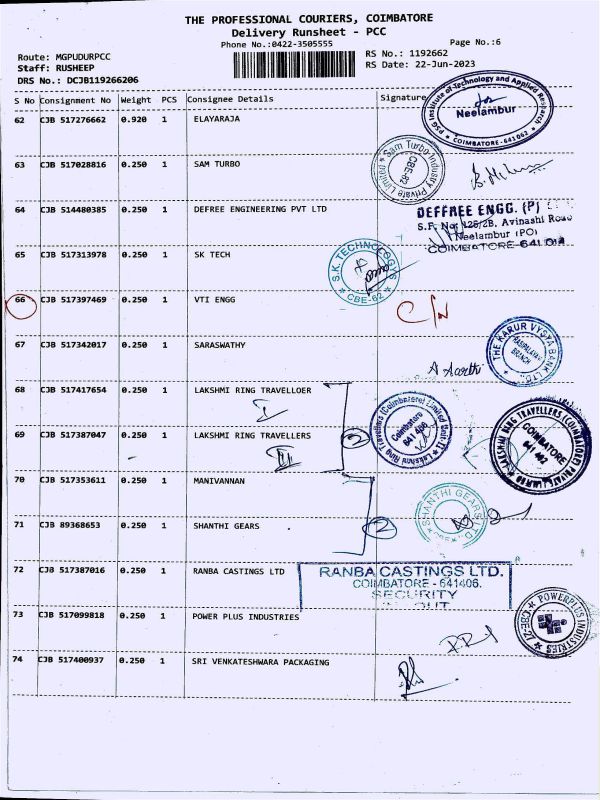 THE PROFESSIONAL COURIERS, COIMBATORE
Delivery Runsheet - PCC
Phone No.:0422-3505555
Page No.:6
Route: MGPUDURPCC
Staff: RUSHEEP
DRS No.: DCJB119266206
RS No.: 1192662
RS Date: 22-Jun-2023
S No Consignment No Weight PCS Consignee Details Signature
PSG Institute of Technology and Applied Research
Neelambur
COIMBATORE-641062
62 CJB 517276662 0.920 1 ELAYARAJA
63 CJB 517028816 0.250 1 SAM TURBO
Sam Turbo Industry Private Limited
CBE-62
64 CJB 514480385 0.250 1 DEFREE ENGINEERING PVT LTD
DEFFREE ENGG. (P)
S.F. No: 128/2B, Avinashi Road
Neelambur (PO)
COIMBATORE-641 014
65 CJB 517313978 0.250 1 SK TECH
S.K. TECHNOLOGYS
CBE-62
66 CJB 517397469 0.250 1 VTI ENGG
C/N
67 CJB 517342017 0.250 1 SARASWATHY
THE KARUR VYSYA BANK LTD.
BRANCH
A Aarthi
68 CJB 517417654 0.250 1 LAKSHMI RING TRAVELLOER
I
69 CJB 517387047 0.250 1 LAKSHMI RING TRAVELLERS
II
2
Lakshmi Ring Travellers (Coimbatore) Limited Unit II
Coimbatore
641 406
LAKSHMI RING TRAVELLERS (COIMBATORE) PRIVATE LIMITED
COIMBATORE
641 402
70 CJB 517353611 0.250 1 MANIVANNAN
71 CJB 89368653 0.250 1 SHANTHI GEARS
2
SHANTHI GEARS LTD
72 CJB 517387016 0.250 1 RANBA CASTINGS LTD
RANBA CASTINGS LTD.
COIMBATORE - 641406.
SECURITY
OUT
73 CJB 517099818 0.250 1 POWER PLUS INDUSTRIES
POWERPLUS INDUSTRIES
74 CJB 517400937 0.250 1 SRI VENKATESHWARA PACKAGING